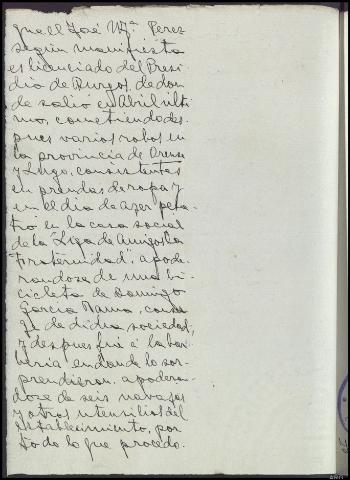 que el José Mª Perez
según manifiesta
es licenciado del Presi-
dio de Burgos, de don-
de salió en Abril últi-
mo, cometiendo des-
pues varios robos en
la provincia de Orense
y Lugo, consistentes
en prendas de ropa y
en el dia de ayer pene-
tró en la casa social
de la "Liga de Amigos la
Fraternidad", apode-
randose de una bi-
cicleta de Domingo
Garcia, conser-
je de dicha sociedad,
y despues fué á la bar-
beria en donde lo sor-
prendieron, apoderan-
dose de seis navajas
y otros utensilios del
establecimiento, por
todo lo que procedo.